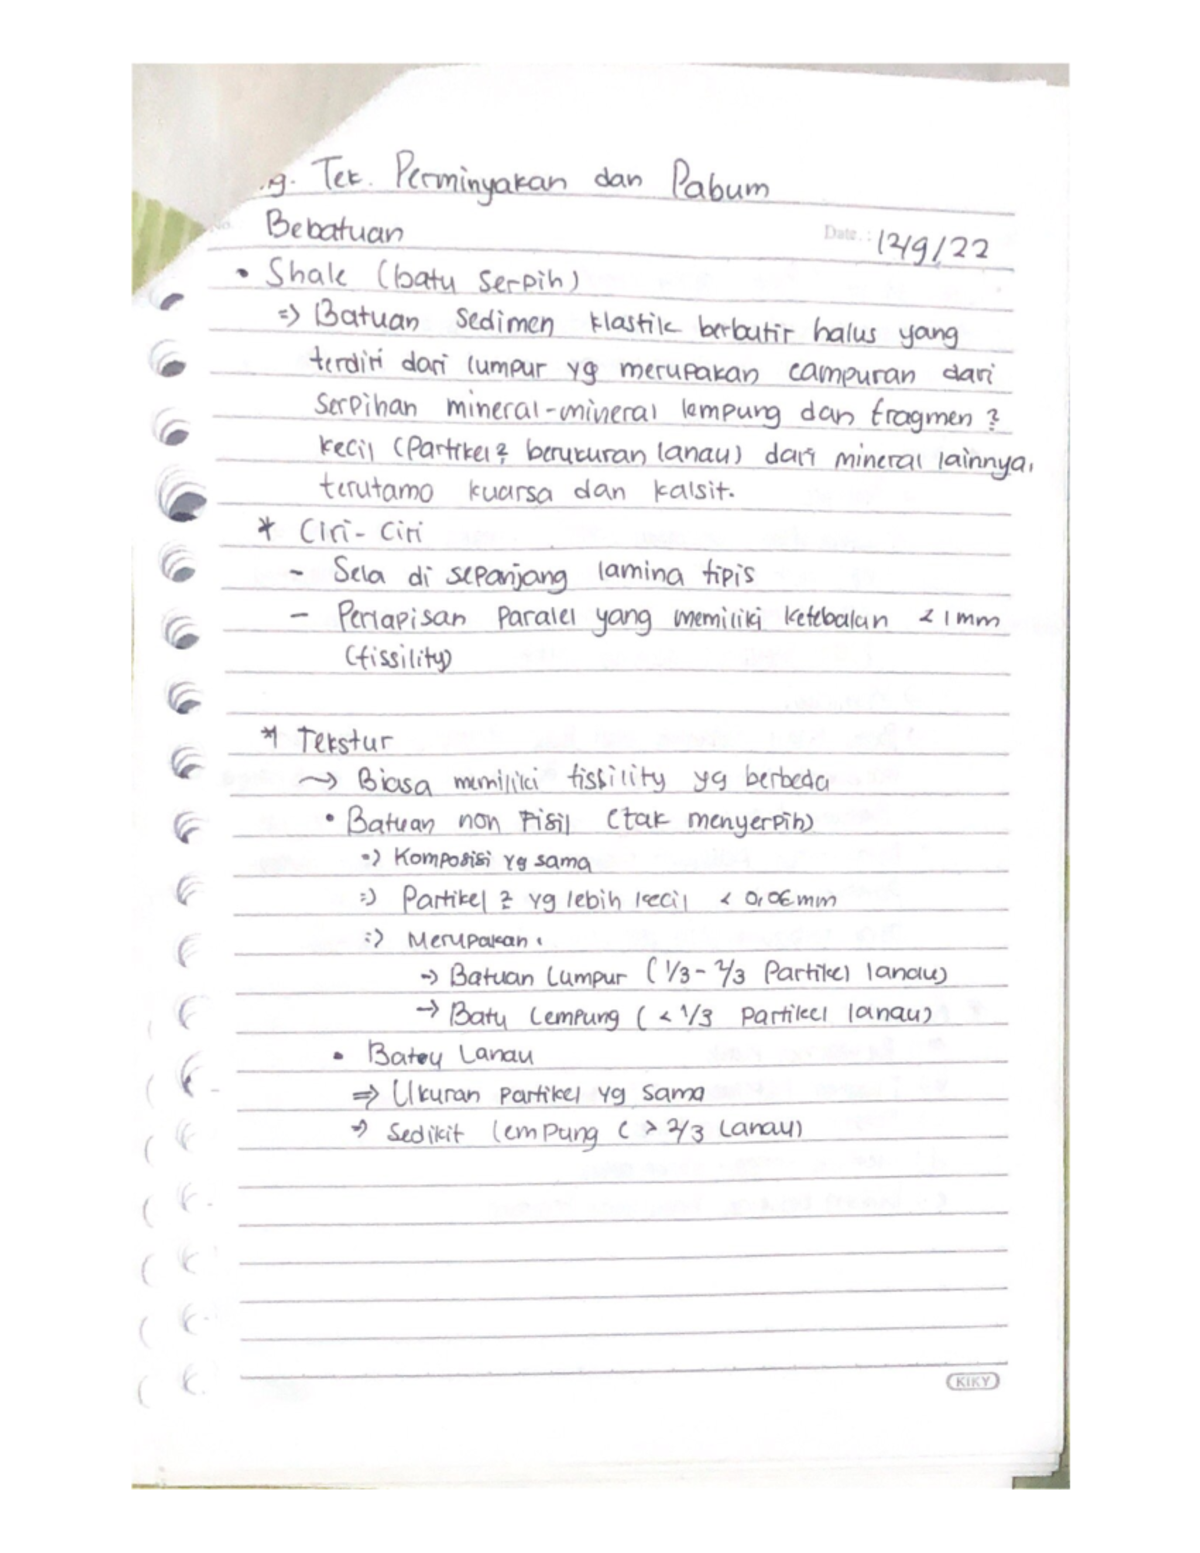 .g. Tek. Perminyakan dan Pabum
Bebatuan
Date. : 12/9/22
• Shale (batu Serpih)
=> Batuan Sedimen klastik berbutir halus yang
terdiri dari lumpur yg merupakan campuran dari
Serpihan mineral-mineral lempung dan fragmen 2
kecil (Partikel2 berukuran lanau) dari mineral lainnya,
terutama kuarsa dan kalsit.
* Ciri - Ciri
- Sela di sepanjang lamina tipis
- Perlapisan Paralel yang memiliki ketebalan < 1 mm
(fissility)
* Tekstur
~> Biasa memiliki fissility yg berbeda
• Batuan non Fisil (tak menyerpih)
=> Komposisi yg sama
=> Partikel 2 yg lebih kecil < 0,06 mm
=> Merupakan :
-> Batuan Lumpur (1/3 - 2/3 Partikel lanau)
-> Batu Lempung ( < 1/3 partikel lanau)
• Batu Lanau
=> Ukuran partikel yg sama
=> Sedikit lempung ( > 2/3 Lanau)
KIKY